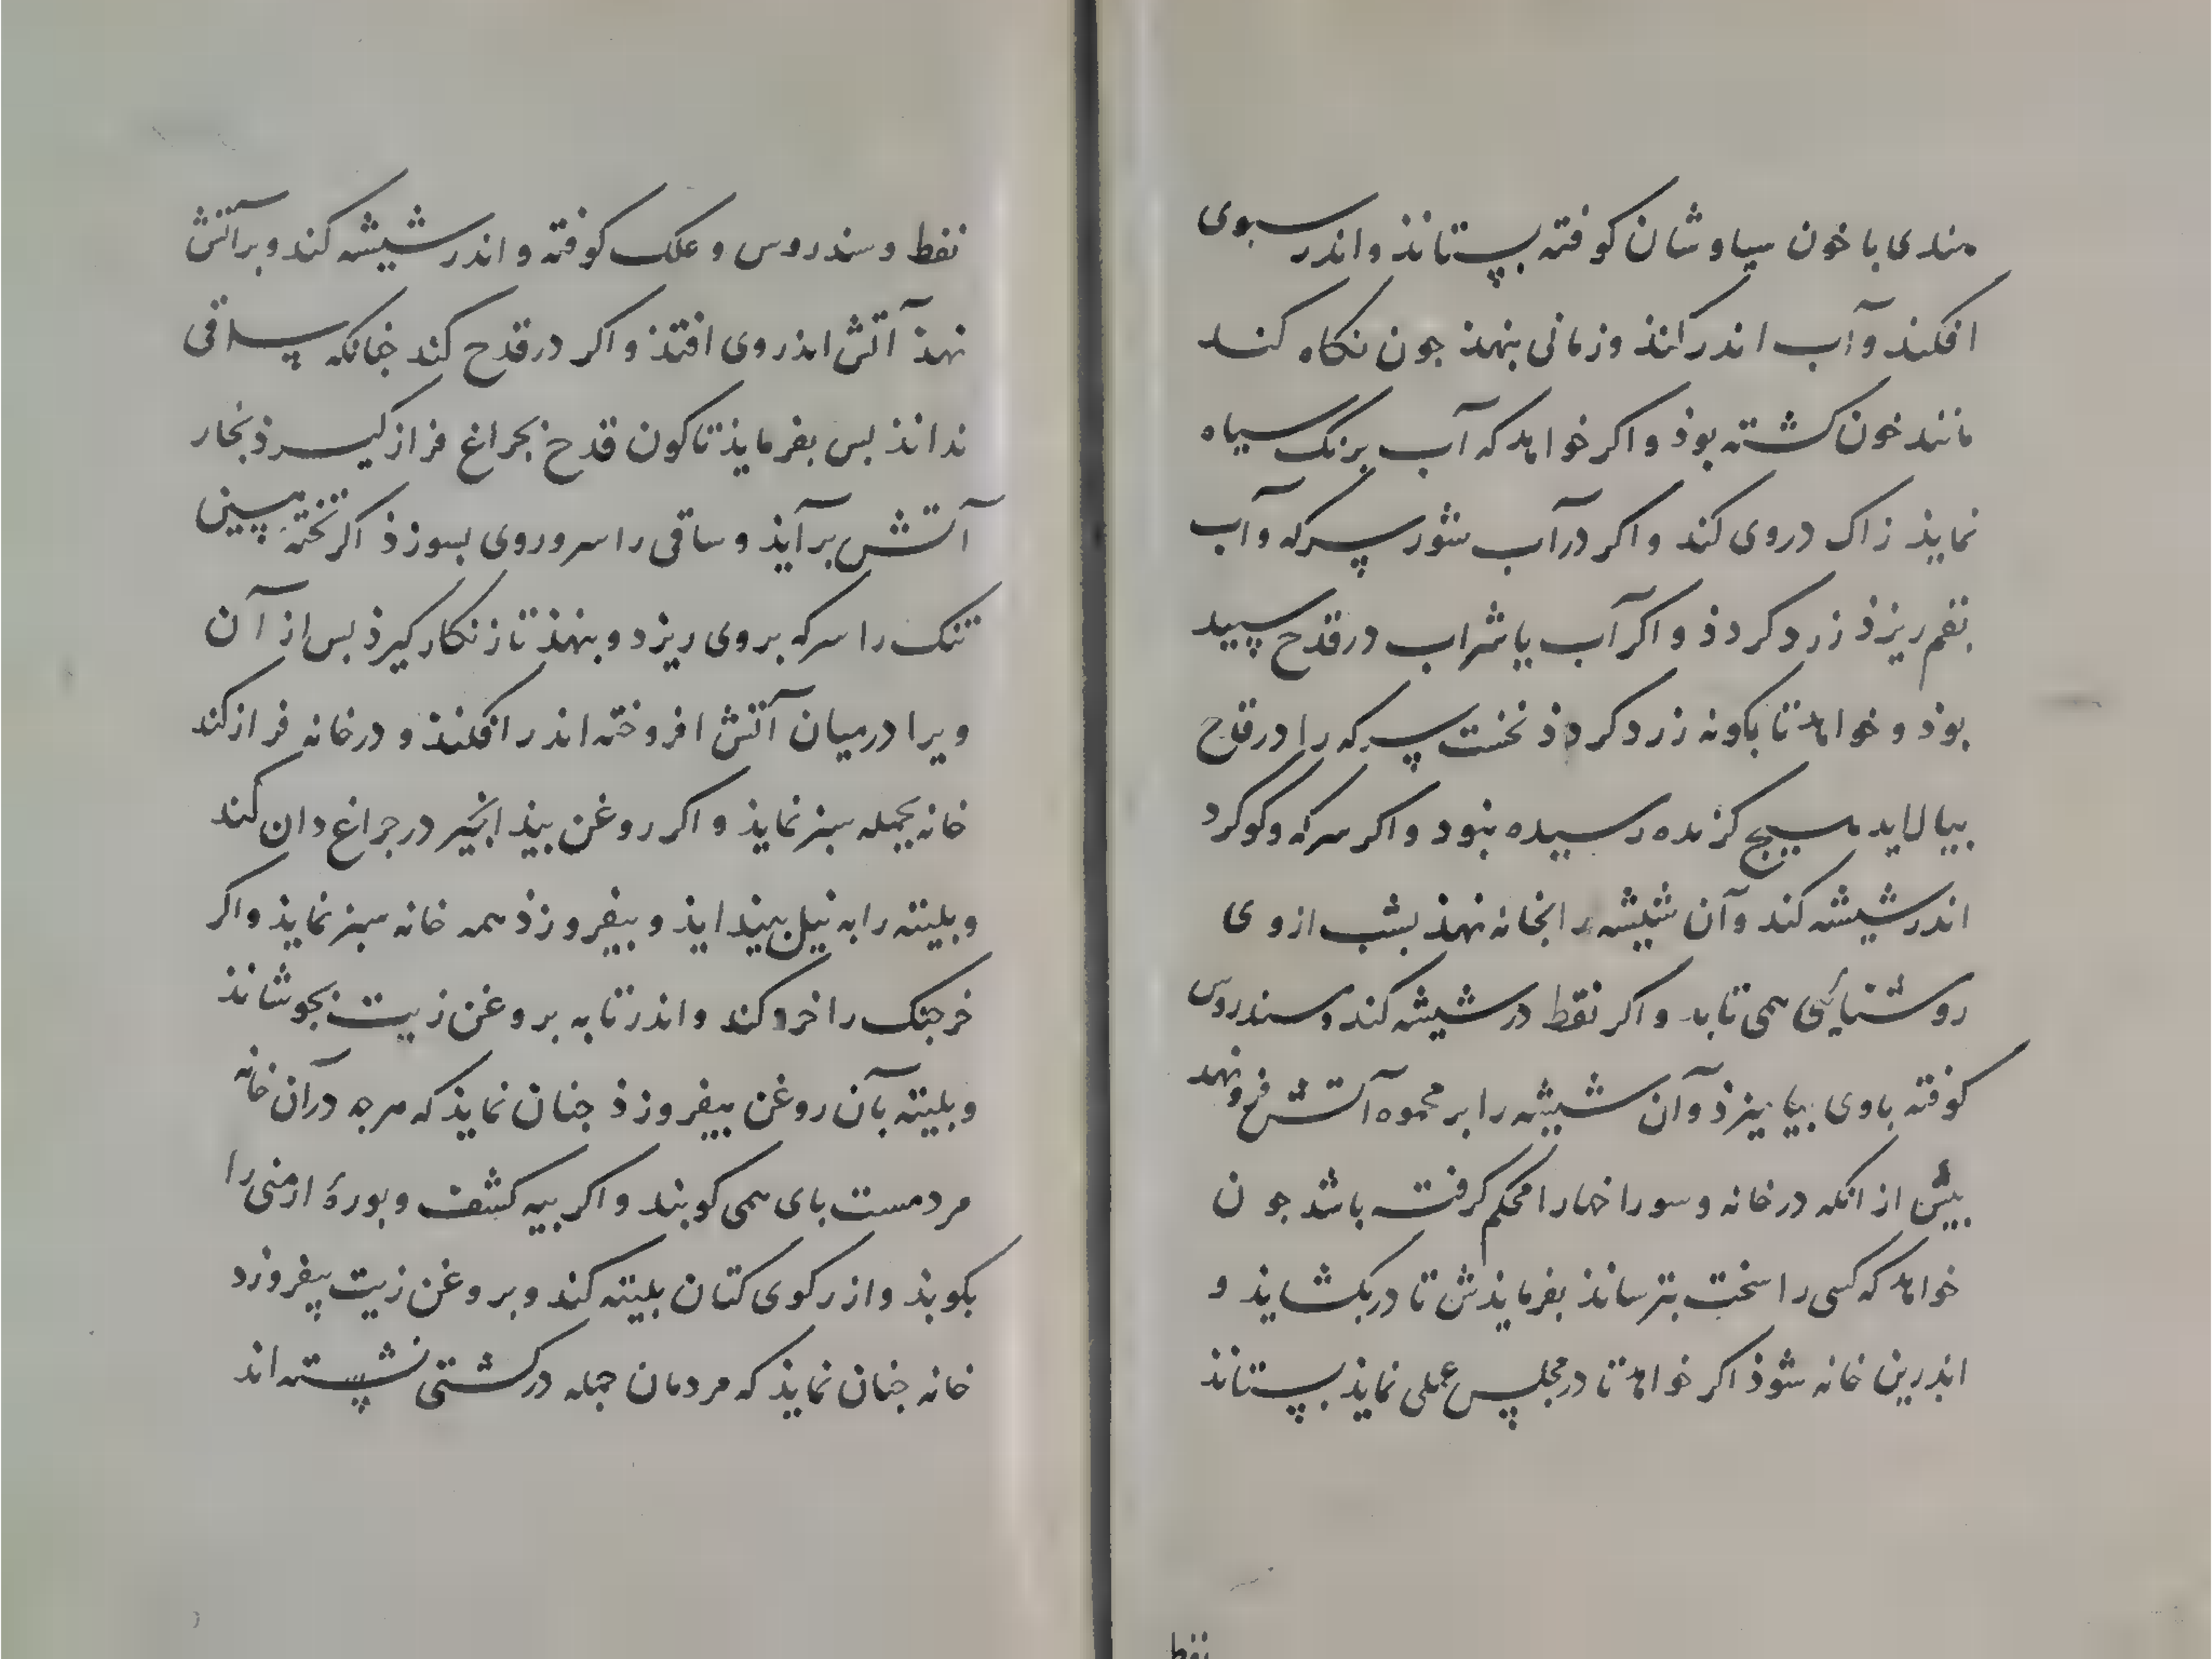 هندی با خون سیاوشان کوفته بستانذ و اندر سبوی
افکنذ و آب اندر کنذ و زمانی بنهذ جون نکاه کنـد
مانند خون کشته بوذ و اکر خواهد که آب برنک سیاه
نمایذ زاک در وی کند و اکر در آب شور سرکه و آب
بقم ریزذ زرد کردذ و اکر آب یا شراب در قدح سپید
بوذ و خواهد تا بکونه زرد کردذ نخست سرکه را در قدح
بیالاید هیج کزنده رسیده نبود و اکر سرکه و کوکرد
اندر شیشه کند و آن شیشه را بخانه نهذ بشب از وی
روشنایی همی تابد و اکر نفط در شیشه کند و سندروس
کوفته با وی بیامیزذ و آن شیشه را بر آتش نهد
بیش از انکه در خانه و سوراخها را محکم کرفته باشد جون
خواهد که کسی را سخت بترسانذ بفرمایذش تا در بکشایذ و
اندرین خانه شوذ اکر خواهد تا در مجلس عملی نمایذ بستانذ
نفط
نفط و سندروس و علک کوفته و اندر شیشه کند و بر آتش
نهذ آتش اندر وی افتذ و اکر در قدح کند جنانکه ساقی
نداند بس بفرمایذ تا کون قدح بجراغ فراز کیرذ بخار
آتش برآیذ و ساقی را سر و روی بسوزذ اکر تخته سینی
تنک را سرکه بر وی ریزد و بنهذ تا زنکار کیرذ بس از آن
ویرا در میان آتش افروخته اندر افکنذ و در خانه فراز کند
خانه بجمله سبز نمایذ و اکر روغن بیذ انجیر در جراغ دان کند
و بلیته را به نیل بیندایذ و بیفروزذ همه خانه سبز نمایذ و اکر
خرجنک را خرد کند و اندر تابه بروغن زیت بجوشانذ
و بلیته بآن روغن بیفروزذ جنان نمایذ که هرجه در آن خانه
مردمست بای همی کوبند و اکر بیه کشف و بورهٔ ارمنی را
بکوبذ و از رکوی کتان بلیته کند و بروغن زیت بیفروزد
خانه جنان نمایذ که مردمان جمله در کشتی نشسته اند